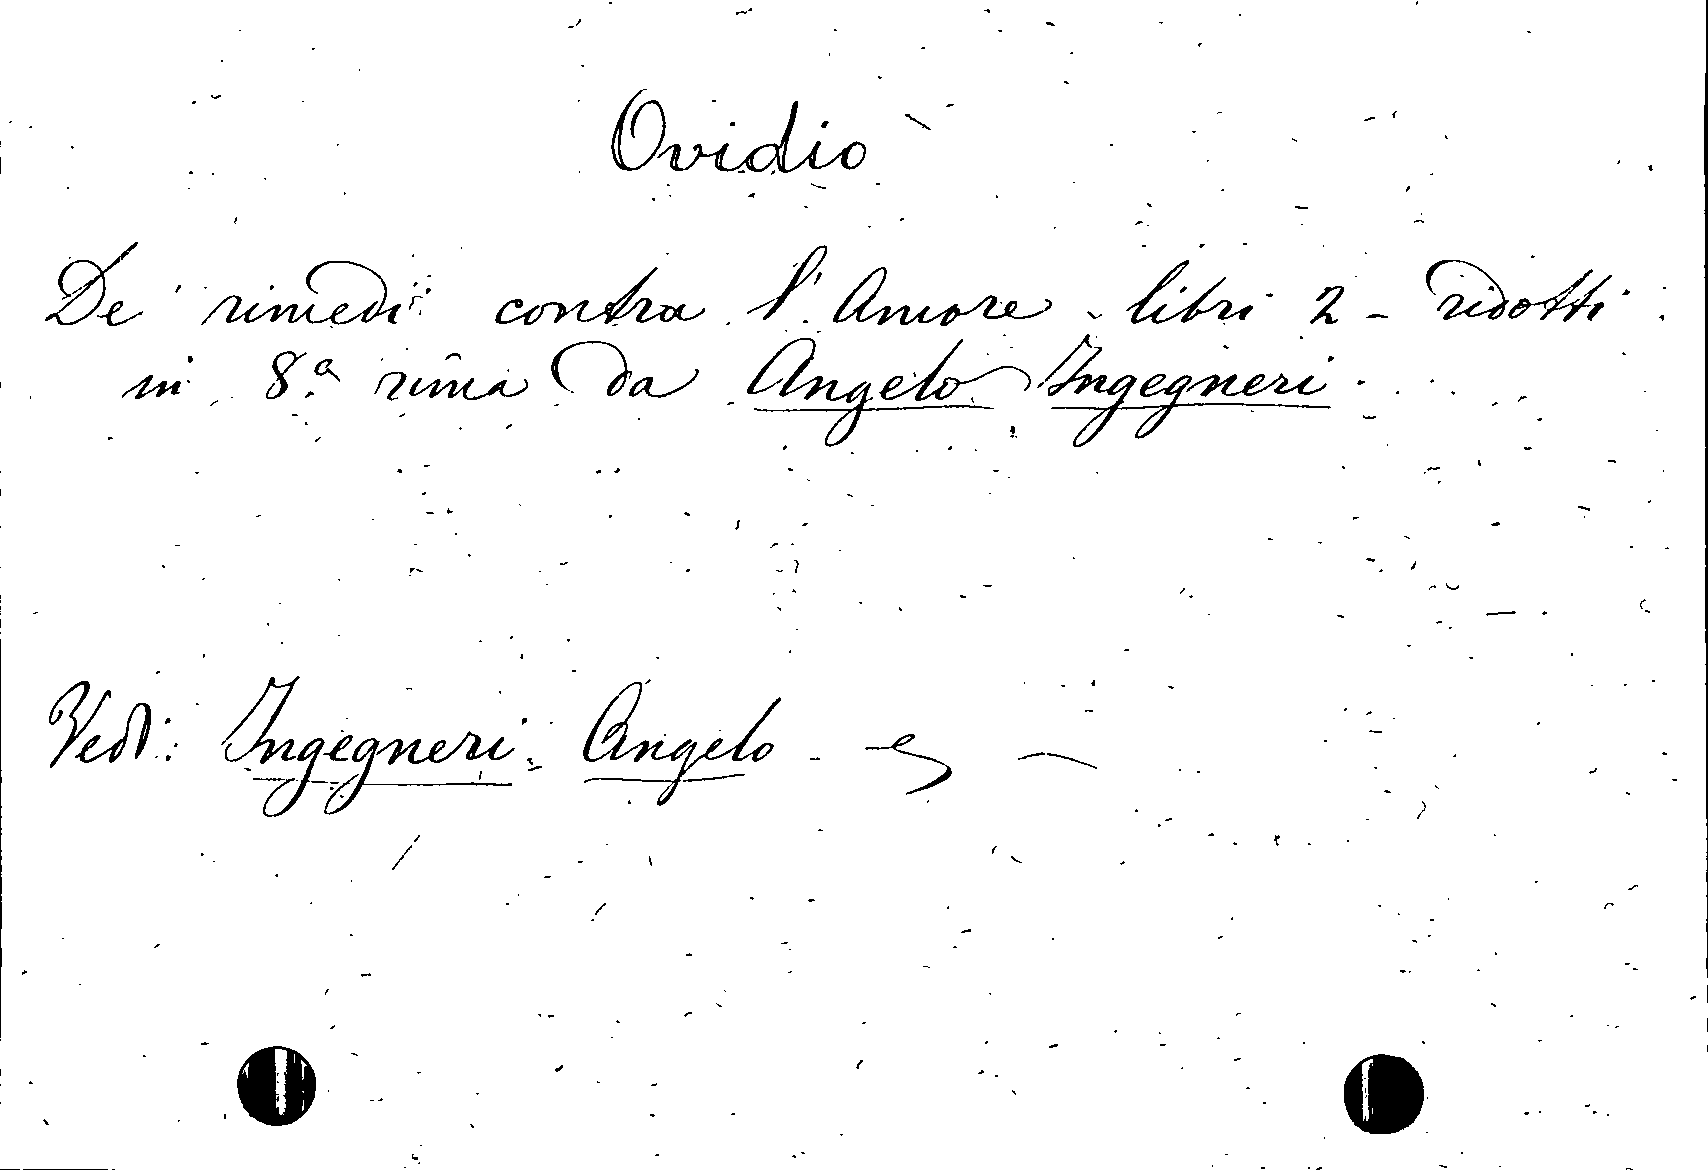 Ovidio
De' rimedii contra l'Amore - libri 2 - ridotti
in 8.a rima da Angelo Ingegneri.
Vedi: Ingegneri - Angelo -